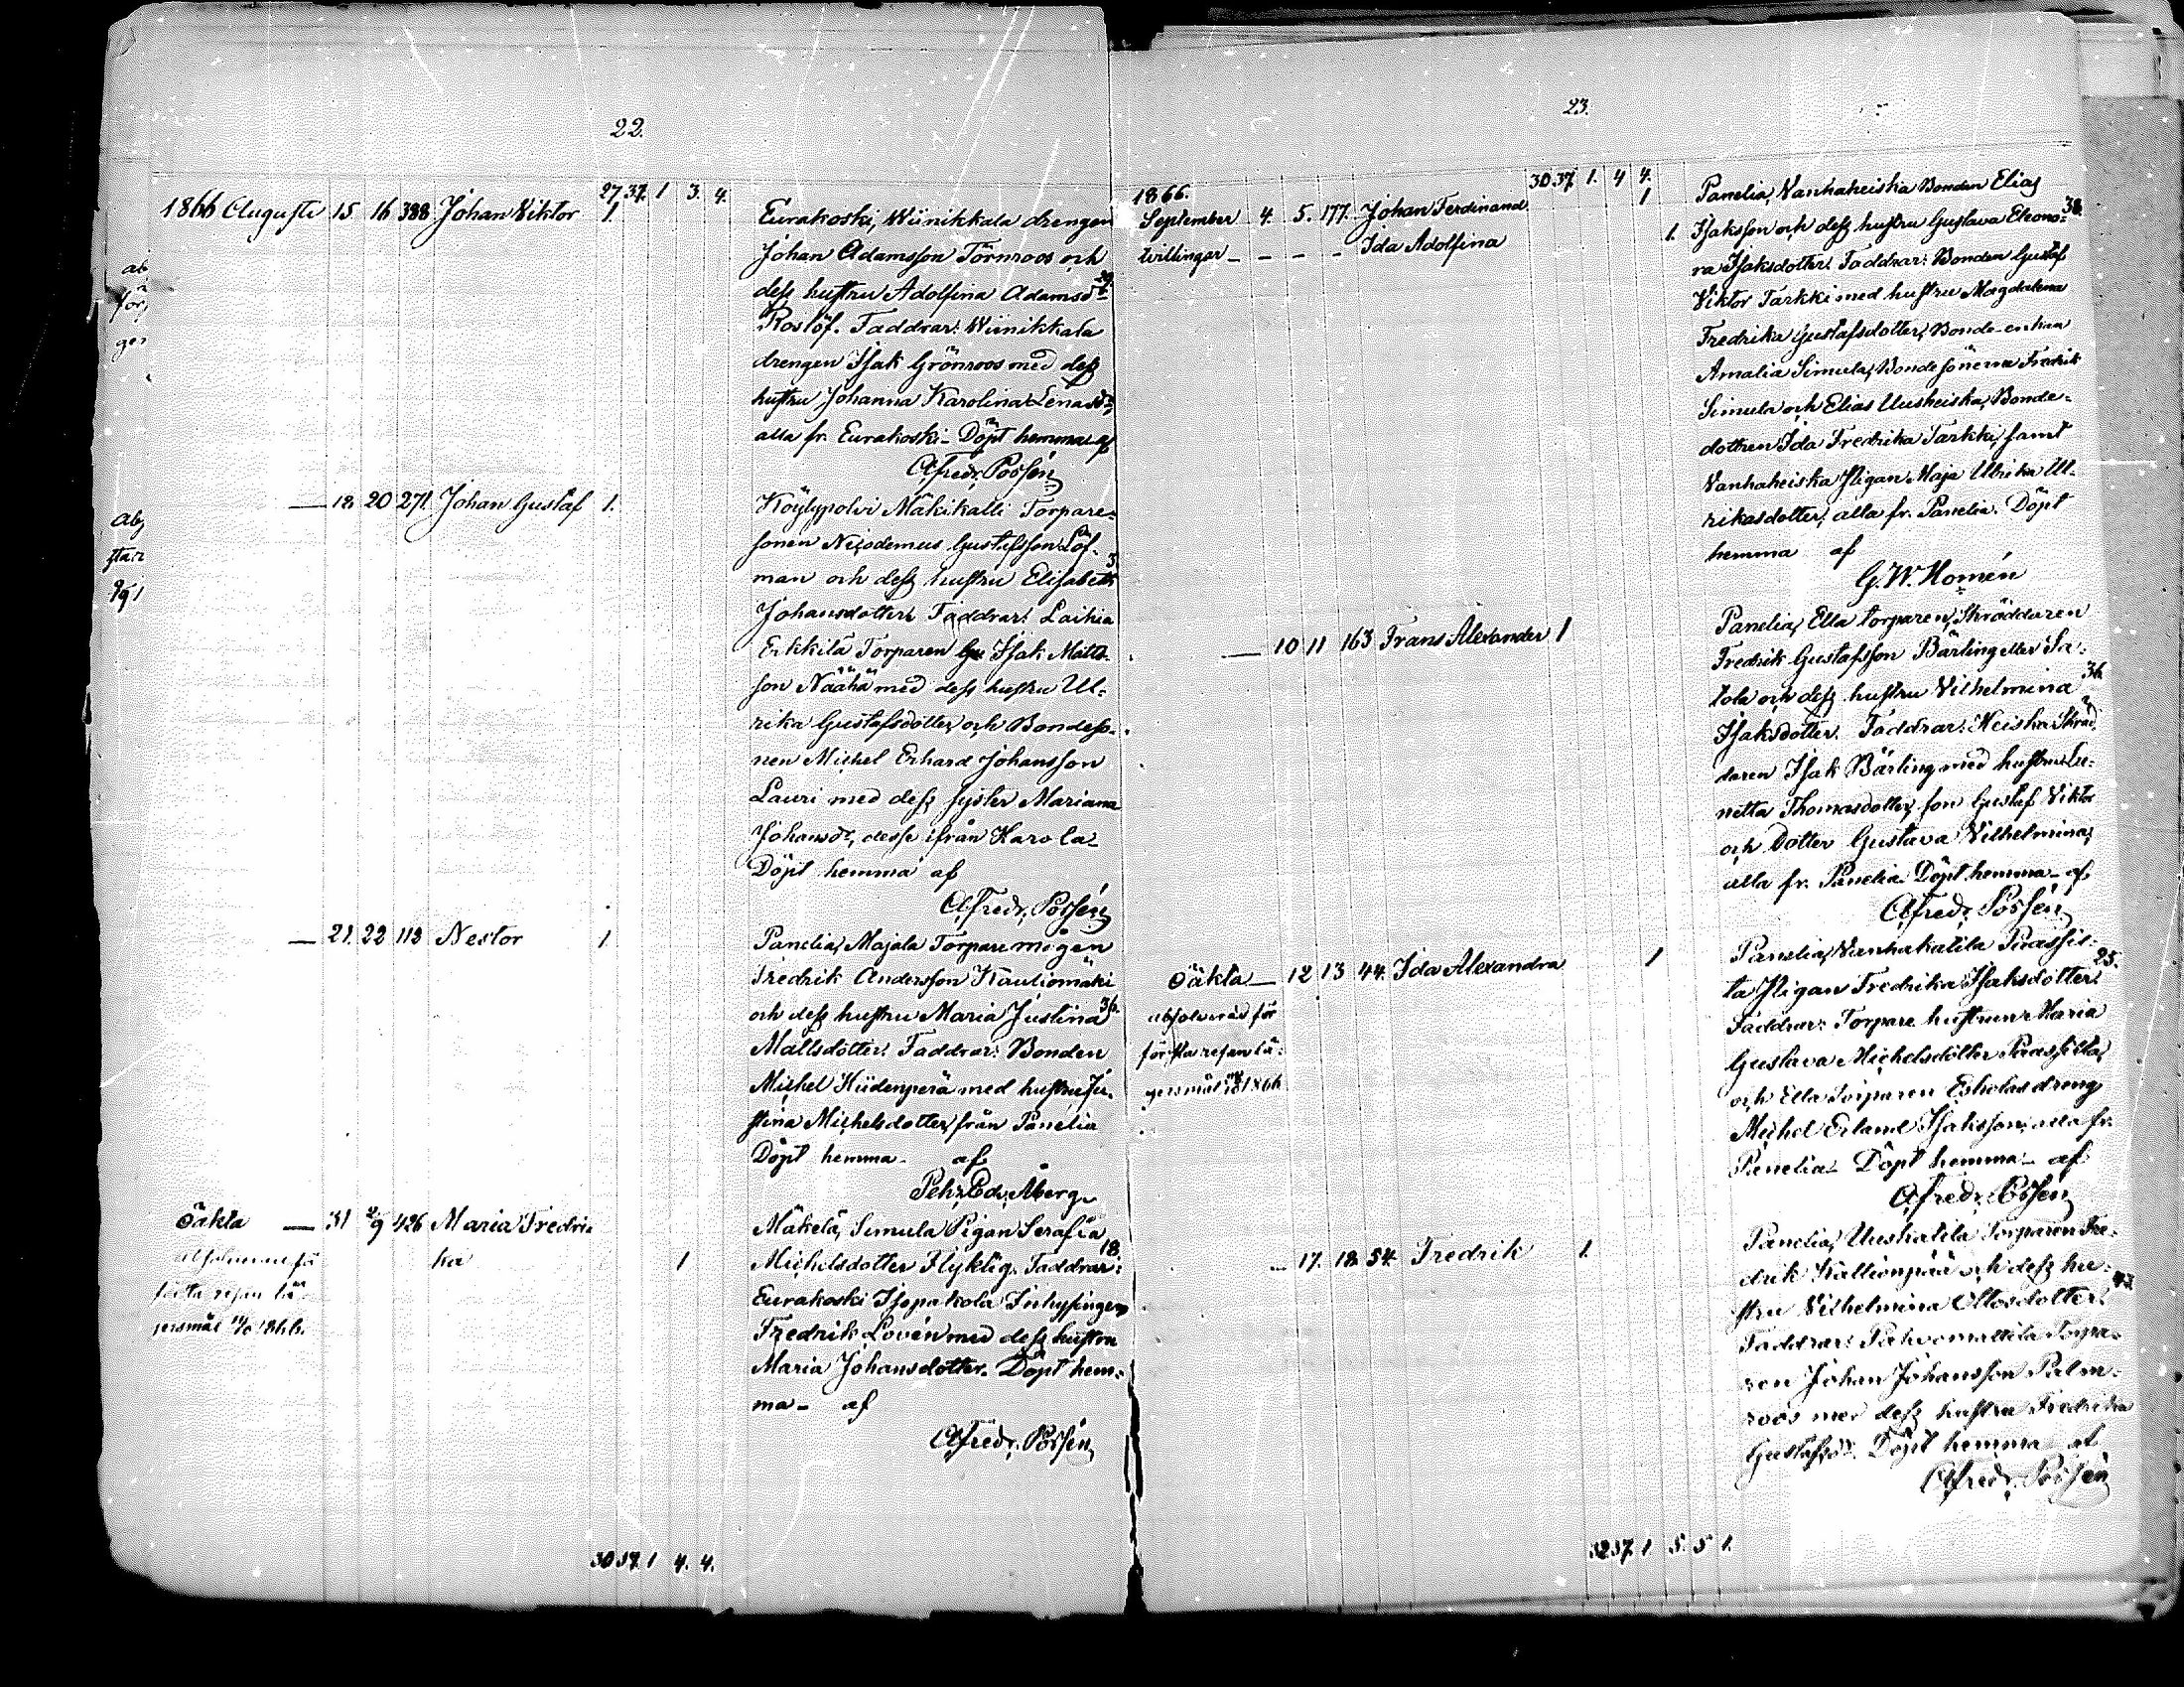 22.
27 37. 1 3. 4.
1866 Augusti 15 16 388 Johan Viktor 1.
Eurakoski, Wiinikkala drengen
Johan Adamsson Törnroos och
dess hustru Adolfina Adamsdr 29.
Roslöf. Faddrar: Wiinikkala
drengen Isak Grönroos med dess
hustru Johanna Karolina Lenasdr,
alla fr. Eurakoski. Döpt hemma af
Afredr. Possén
— 18. 20 271. Johan Gustaf 1.
Köylypolvi Mäkikalli Torpare-
sonen Nicodemus Gustafsson Löf-
man och dess hustru Elisabeth 3.
Johansdotter. Faddrar: Laihia
Erkkilä Torparen Isak Matts-
son Näähä med dess hustru Ul-
rika Gustafsdotter, och Bondeso-
nen Michel Erhard Johansson
Lauri med dess syster Mariana
Johansdr, desse ifrån Karola.
Döpt hemma af
Afredr. Possén
— 21. 22 113 Nestor 1
Panelia, Majala Torparemågen
Fredrik Andersson Kauliomäki
och dess hustru Maria Justina 36.
Mattsdotter. Faddrar: Bonden
Michel Hiidenperä med hustru Ju-
stina Michelsdotter, från Panelia
Döpt hemma af
Pehr Edv. Åberg
Oäkta — 31 2/9 426 Maria Fredri-
ka 1
första resan lä-
gersmål 1866.
Mäkelä, Simula Pigan Serafia
Michelsdotter Flyktig. 18. Faddrar:
Eurakoski Isopakola Inhysingen
Fredrik Lovén med dess hustru
Maria Johansdotter. Döpt hem-
ma af
Afredr. Possén
30 37. 1 4. 4.
23.
30 37 1. 4 4.
1866.
September 4. 5. 177. Johan Ferdinand 1
tvillingar - - - - Ida Adolfina 1.
Panelia, Vanhaheiska Bonden Elias
Isaksson och dess hustru Gustava Eleono- 38.
ra Isaksdotter. Faddrar: Bonden Gustaf
Viktor Tarkki med hustru Magdalena
Fredrika Gustafsdotter, Bonde-enkan
Amalia Simula, Bondesönerna Fredrik
Simula och Elias Uusheiska, Bonde-
dottren Ida Fredrika Tarkki, samt
Vanhaheiska Pigan Maja Ulrika Ul-
rikasdotter, alla fr. Panelia. Döpt
hemma af
G. W. Homén
— 10 11 163 Frans Alexander 1
Panelia, Ella torparen, Skräddaren
Fredrik Gustafsson Bärling eller Sa-
lola och dess hustru Vilhelmina 36.
Isaksdotter. Faddrar: Heiska Skräd-
daren Isak Bärling med hustru Le-
netta Thomasdotter, son Gustaf Viktor
och Dotter Gustava Vilhelmina,
alla fr. Panelia. Döpt hemma af
Afredr. Possén
Oäkta — 12 13 44. Ida Alexandra 1
absolverad för
första resans lä-
gersmål 1866
Panelia, Vanhakatila Paassil-
ta Pigan Fredrika Isaksdotter. 25.
Faddrar: Torpare hustrun Maria
Gustava Michelsdotter Paassilta,
och Ella Torparen Eskolas dreng
Michel Erland Isaksson, alla fr.
Panelia. Döpt hemma af
Afredr. Possén
— 17. 18. 54. Fredrik 1.
Panelia, Uusikatila Torparen Fre-
drik Kallionpää och dess hu-
stru Vilhelmina Ottosdotter. 43
Faddrar: Torpa-
ren Johan Johansson Palm-
roos med dess hustru Fredrika
Gustafsdr. Döpt hemma af
Afredr. Possén
32 37. 1. 5. 5 1.